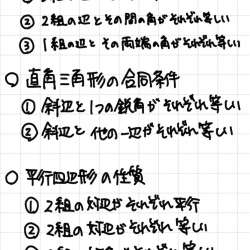 ② 2組の辺とその間の角がそれぞれ等しい
③ 1組の辺とその両端の角がそれぞれ等しい
○ 直角三角形の合同条件
① 斜辺と1つの鋭角がそれぞれ等しい
② 斜辺と他の一辺がそれぞれ等しい
○ 平行四辺形の性質
① 2組の対辺がそれぞれ平行
② 2組の対辺がそれぞれ等しい